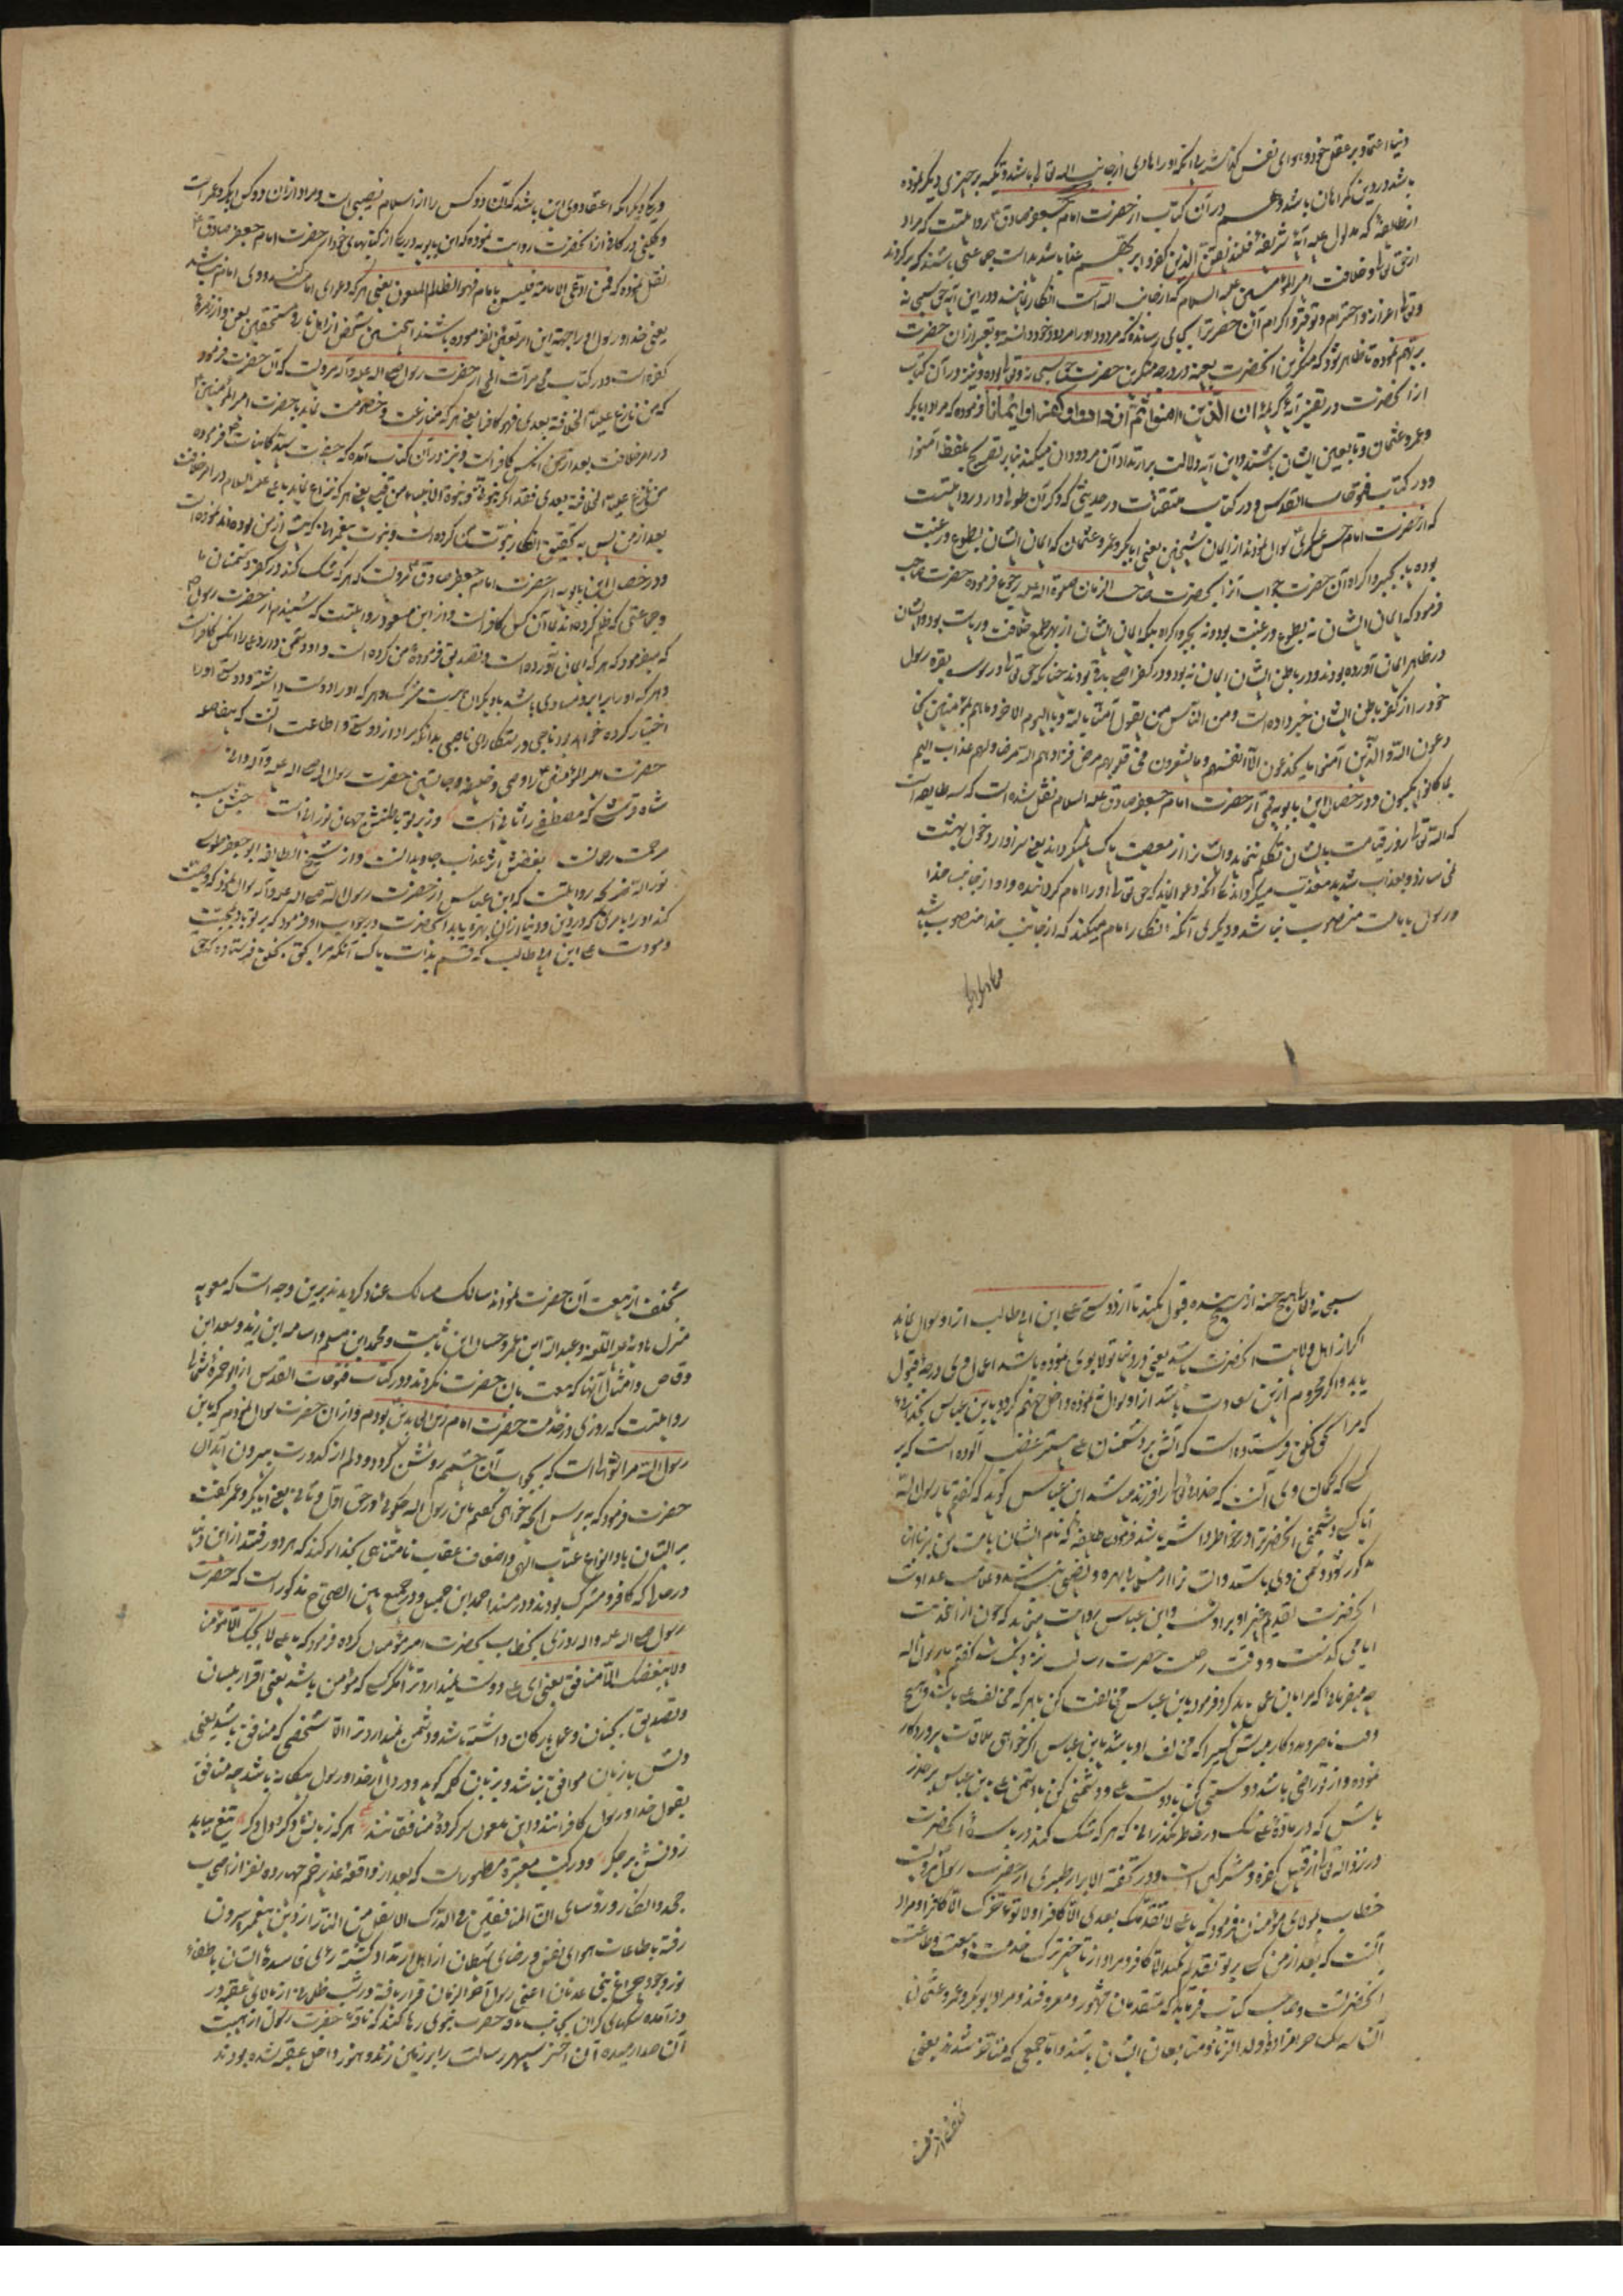 دنیا اعتماد بر عقل خود و هوای نفس کذاشته بی آنکه او را هادی از جانب اله تعالی باشد و تکیه بر چیزی دیکر نموده
باشد در دین کمراهان باشد و هم در آن کتاب از حضرت امام جعفر صادق ع روایتست که مراد
از طایفهٔ که مدلول علیه آیهٔ شریفهٔ فلنذیقن الذین کفروا بربهم عذابا شدیدا است جماعتی باشند که برکردند
از حق تعالی و خلافت امیرالمؤمنین علیه السلام که از جانب اله است انکار نمایند و در این آیه حق سبحانه
وتعالی اعزاز و احترام و توقیر و اکرام آن حضرت بجای رسانده که مردود او را مردود خود دانسته و تعبیر از آن حضرت
بربهم نموده تا ظاهر شود که منکرین آنحضرت بعینه در درجه منکرین حضرت حق سبحانه وتعالی بوده و نیز در آن کتاب
از آنحضرت در تفسیر آیهٔ کریمهٔ ان الذین امنوا ثم کفروا ثم ازدادوا کفرا فرموده که مراد ابابکر
و عمر و عثمان و تابعین ایشان باشند و این آیه دلالت بر ارتداد آن مردودان میکند بنابر تصریح بلفظ آمنوا
و در کتاب فتوحات القدس و در کتاب منتقیات در حدیثی که ذکر آن طولی دارد روایتست
که از حضرت امام حسن عسکری ع سوال نمودند از ایمان شیخین یعنی ابابکر و عمر و عثمان که ایمان ایشان بطوع و رغبت
بوده یا بجبر و اکراه آن حضرت جواب آنرا بحضرت صاحب الزمان صلوة اله علیه رجوع فرموده حضرت صاحب
فرمود که ایمان ایشان نه بطوع و رغبت بود و نه بجبر و اکراه بلکه ایمان ایشان از بهر طمع خلافت و ریاست بود و ایشان
در ظاهر ایمان آورده بودند و در باطن ایشان ایمان نبود و در کفر اصلی باقی بودند چنانکه حق تعالی در سوره بقره رسول
خود را از کفر باطن ایشان خبر داده است و من الناس من یقول آمنا بالله و بالیوم الاخر و ما هم بمؤمنین یخا
دعون الله والذین آمنوا و ما یخدعون الا انفسهم و ما یشعرون فی قلوبهم مرض فزادهم الله مرضا و لهم عذاب الیم
بما کانوا یکذبون و در خصال ابن بابویه قمی از حضرت امام جعفر صادق علیه السلام نقل شده است که سه طایفه است
که اله تعالی روز قیامت با ایشان تکلم نمی نماید و ایشان را از معصیت پاک نمیکرداند یعنی سزاوار دخول بهشت
نمی سازد و بعذاب شدید معذب میکرداند یکی آنکه دعوا نماید که حق تعالی او را امام کردانیده و او از جانب خدا
و رسول بامامت منصوب نباشد و دیکری آنکه انکار امام میکند که از جانب خدا منصوب باشد
و دیکر آنکه اعتقاد وی این باشد که آن دو کس را از اسلام نصیبی است و مراد از آن دو کس ابابکر و عمر است
و کلینی در کافی از آنحضرت روایت نموده که ابن بابویه در یکی از کتابهای خود از حضرت امام جعفر صادق ع
نقل نموده که فمن ادعی الامامة و لیس بامام فهو الظالم الملعون یعنی هر که دعوای امامت کند و وی امام نباشد
یعنی خدا و رسول او را جهة این امر تعیین نفرموده باشند آنچنین شخص از اهل نار و مستحقین لعن و از زمرهٔ
کفره است و در کتاب از حضرت رسول صلی اله علیه وآله مرویست که آن حضرت فرمود
که من نازع علیا الخلافة بعدی فهو کافر یعنی هر که منازعت و خصومت نماید با حضرت امیرالمؤمنین ع
در امر خلافت بعد از من آنکس کافر است و نیز در آن کتاب آمده که حضرت سید کاینات فرموده
من نازع علیا الخلافة بعدی فقد انکر نبوتی و نبوة الانبیاء من قبلی یعنی هر که نزاع نماید با علی علیه السلام در امر خلافت
بعد از من پس به تحقیق انکار نبوت من کرده است و نبوت پیغمبرانی که پیش از من بوده اند نموده است
و در خصال ابن بابویه از حضرت امام جعفر صادق ع مرویست که هر که شک کند در کفر دشمنان ما
و جماعتی که ظلم کرده اند بما آن کس کافر است و از ابن مسعود روایتست که شنیدم از حضرت رسول ص
که میفرمود که هر که ایمان آورده است و تصدیق فرمودهٔ من کرده است و او دشمن دارد علی را آنکس کافر است
و هر که او را برابر و مساوی باشد با دیکران و هر که او را دوست داشته و دوستی او را
اختیار کرده خواهد بود ناجی و رستکار ای ناصبی بدانکه مراد از دوستی و اطاعت آنست که بیفاصله
حضرت امیرالمؤمنین ع را وصی و خلیفه و جانشین حضرت رسول اله صلی اله علیه وآله دانی
شاه قرشی که مصطفی را ثانی است وز پرتو باطنش جهان نورانی است حبش سبب
رحمت رحمانست بغضش اثر عذاب جاویدانست و از شیخ الطایفه ابو جعفر طوسی
نور اله مرقده روایتست که ابن عباس از حضرت رسول اله صلی اله علیه وآله سوال نمود که وصیت
کند او را بامری که در دین و دنیا از آن بهره یابد آنحضرت در جواب او فرمود که بر تو باد بمحبت
و مودت علی ابن ابی طالب که قسم بذات پاک آنکه مرا بحق بخلق فرستاده که حق
سبحانه وتعالی هیچ حسنه از هیچ بنده قبول نمیکند تا از دوستی علی ابن ابی طالب از او سوال نماید
اکر از اهل ولایت آنحضرت باشد یعنی در دنیا تولا بوی نموده باشد اعمال وی درجهٔ قبول
یابد و اکر محروم ازین سعادت باشد از او سوال ننموده داخل جهنم کردد یا ابن عباس بخدای
که مرا بحق بخلق فرستاده است که آتش بر دشمنان علی بیشتر غضب آلوده است که بر
کسی که کمان وی آنست که خدا تعالی را فرزند میباشد ابن عباس کوید که کفتم یا رسول اله
آیا کسی دشمنی آنحضرت را در خاطر داشته باشد فرمود بلی طایفهٔ که نام ایشان بامت من بر زبان
مذکور شود دشمن وی باشند و ایشان را از مسلمانی بهره و نصیبی نیست و علامت عداوت
آنحضرت تقدیم غیر او بر اوست و ابن عباس روایت مینماید که چون از این حدیث
ایامی کذشت و وقت رحلت حضرت رسالت نزدیک شد کفتم یا رسول اله
چه میفرمائی که مرا با این عمل باید کرد فرمود یا ابن عباس مخالفت کن با هر که مخالف علی باشد و هیچ
وقت ناصر و مددکار مباش کسی را که مخالف او باشد یا ابن عباس اکر خواهی ملاقات پروردکار
نموده و از تو راضی باشد دوستی کن با دوست علی و دشمنی کن با دشمن علی یا ابن عباس بر حذر
باش که در مادهٔ علی شک در خاطر بکذرانی که هر که شک کند در باب آنحضرت
در نزد اله تعالی از قبیل کفره و مشرکین است و در تحفة الابرار طبری از حضرت رسول مرویست
خطاب بمولای مؤمنان فرمود که یا علی لا تقدمک بعدی الا کافر و لا تاخر عنک الا کافر و مراد
آنست که بعد از من کسی بر تو تقدم نمیکند الا کافر و مراد از تاخیر ترک خدمت و بیعت و طاعت
آنحضرتست و صاحب کتاب فرماید که متقدمان مشهور و معروفند و مراد ابوبکر و عمر و عثمان
آن سه سک حرامزادهٔ ولد الزنا و متابعان ایشان باشند و اما جمعی که متاخر شدند یعنی
تخلف از بیعت آن حضرت نموده سالک مسالک عناد کردیدند برین وجه است که معویه
منزل هاویه علیه اللعنه و عبداله ابن عمر و حسان ابن ثابت و محمد ابن مسلم و اسامه ابن زید و سعد ابن
وقاص و امثال آنها که بیعت بآن حضرت نکردند و در کتاب فتوحات القدس از ابو حمزهٔ ثمالی
روایتست که روزی در خدمت حضرت امام زین العابدین ع بودم و از آن حضرت سوال نمودم که یا ابن
رسول اله مرا سوالهاست که بجواب آن چشمم روشن کردد و دلم از کدورت بیرون آید آن
حضرت فرمود که بپرس آنچه خواهی کفتم یا ابن رسول اله چکوئی در حق اول و ثانی یعنی ابابکر و عمر کفت
بر ایشان باد انواع عذاب الهی و اضعاف عقاب نامتناهی بخدا سوکند که هر دو رفتند ازین دنیا
در حالی که کافر و مشرک بودند و در مسند احمد ابن حنبل و در جمع بین الصحاح مذکور است که حضرت
رسول صلی اله علیه وآله روزی خطاب بحضرت امیر مؤمنان کرده فرمود که یا علی لا یحبک الا مؤمن
ولا یبغضک الا منافق یعنی ای علی دوست نمیدارد ترا مکر کسی که مؤمن باشد یعنی اقرار بلسان
و تصدیق بجنان و عمل بارکان داشته باشد و دشمن نمیدارد ترا الا شخصی که منافق باشد یعنی
دلش با زبان موافق نباشد و بزبان کلمه کوید و در دل از خدا و رسول بیکانه باشد چه منافق
بقول خدا و رسول کافرانند و این ملعون سرکردهٔ منافقانند هر که زبانش دکر و دل دکر تیغ بباید
زدنش بر جکر و در کتب معتبره مسطور است که بعد از واقعهٔ غدیر خم چهارده نفر از اصحاب
جحد و انکار و رؤسای ان المنافقین فی الدرک الاسفل من النار از دین پیغمبر بیرون
رفته باطاعت هوای نفس و رضای شیطان از اهل ارتداد کشته رای فاسدهٔ ایشان باطفاء
نور وجود چراغ نبی عدنان اعنی رسول آخر الزمان قرار یافته در شب ظلمانی از بالای عقبه در
درآمده سنکهای کران بجانب ناقه حضرت نبوی رها کنند که ناقهٔ حضرت رسول از هیبت
آن صدا رمیده آن اختر سپهر رسالت را بر زمین زند و هنوز داخل عقبه نشده بودند